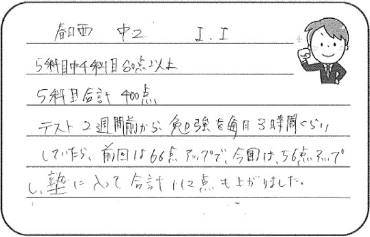 西 中2 I.I
5科目中4科目80点以上
5科目合計 400点
テスト2週間前から、勉強を毎日3時間くらい
していたら、前回は66点アップで、今回は、56点アップ
し、塾に入って合計112点も上がりました。